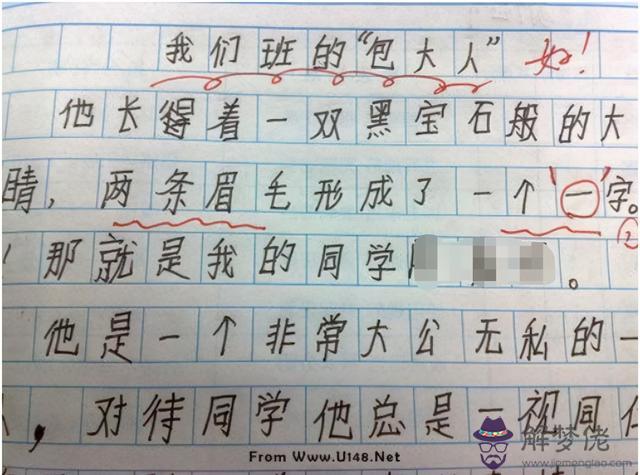 我们班的“包大人” 好!
他长得着一双黑宝石般的大
睛,两条眉毛形成了一个“一”字。
②
那就是我的同学 。
他是一个非常大公无私的一
,对待同学他总是一视同
From Www.U148.Net
解梦佬
www.jiemenglao.com